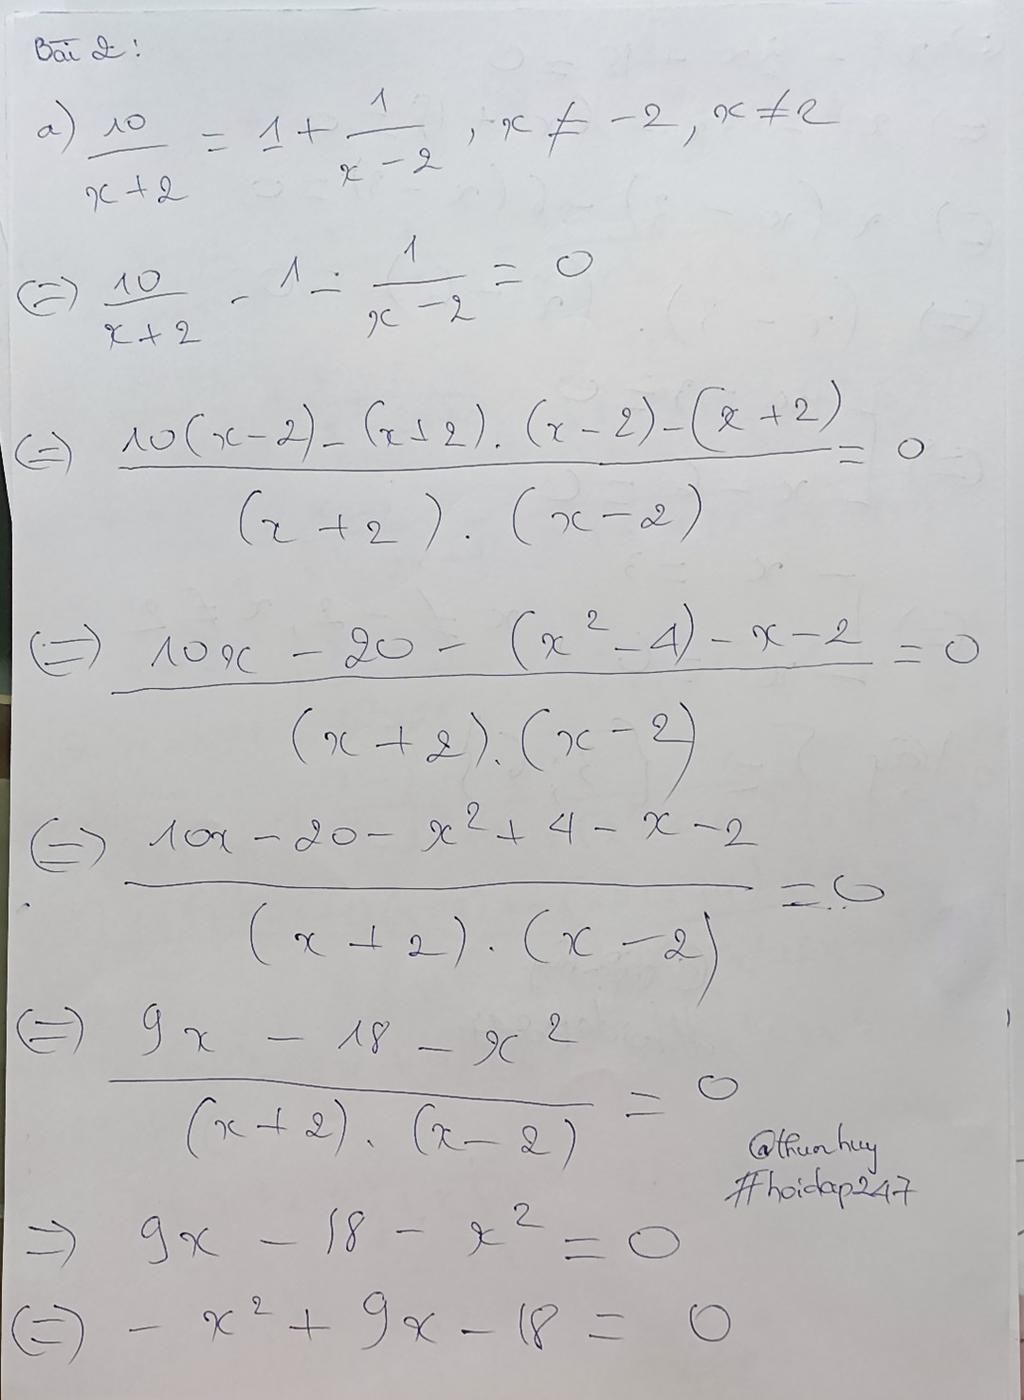 Bài 2:
a) 10/(x+2) = 1 + 1/(x-2), x ≠ -2, x ≠ 2
(=) 10/(x+2) - 1 - 1/(x-2) = 0
(=) (10(x-2) - (x+2).(x-2) - (x+2))/((x+2).(x-2)) = 0
(=) (10x - 20 - (x²-4) - x - 2)/((x+2).(x-2)) = 0
(=) (10x - 20 - x² + 4 - x - 2)/((x+2).(x-2)) = 0
(=) (9x - 18 - x²)/((x+2).(x-2)) = 0
@thuanhuy
#hoidap247
=) 9x - 18 - x² = 0
(=) - x² + 9x - 18 = 0